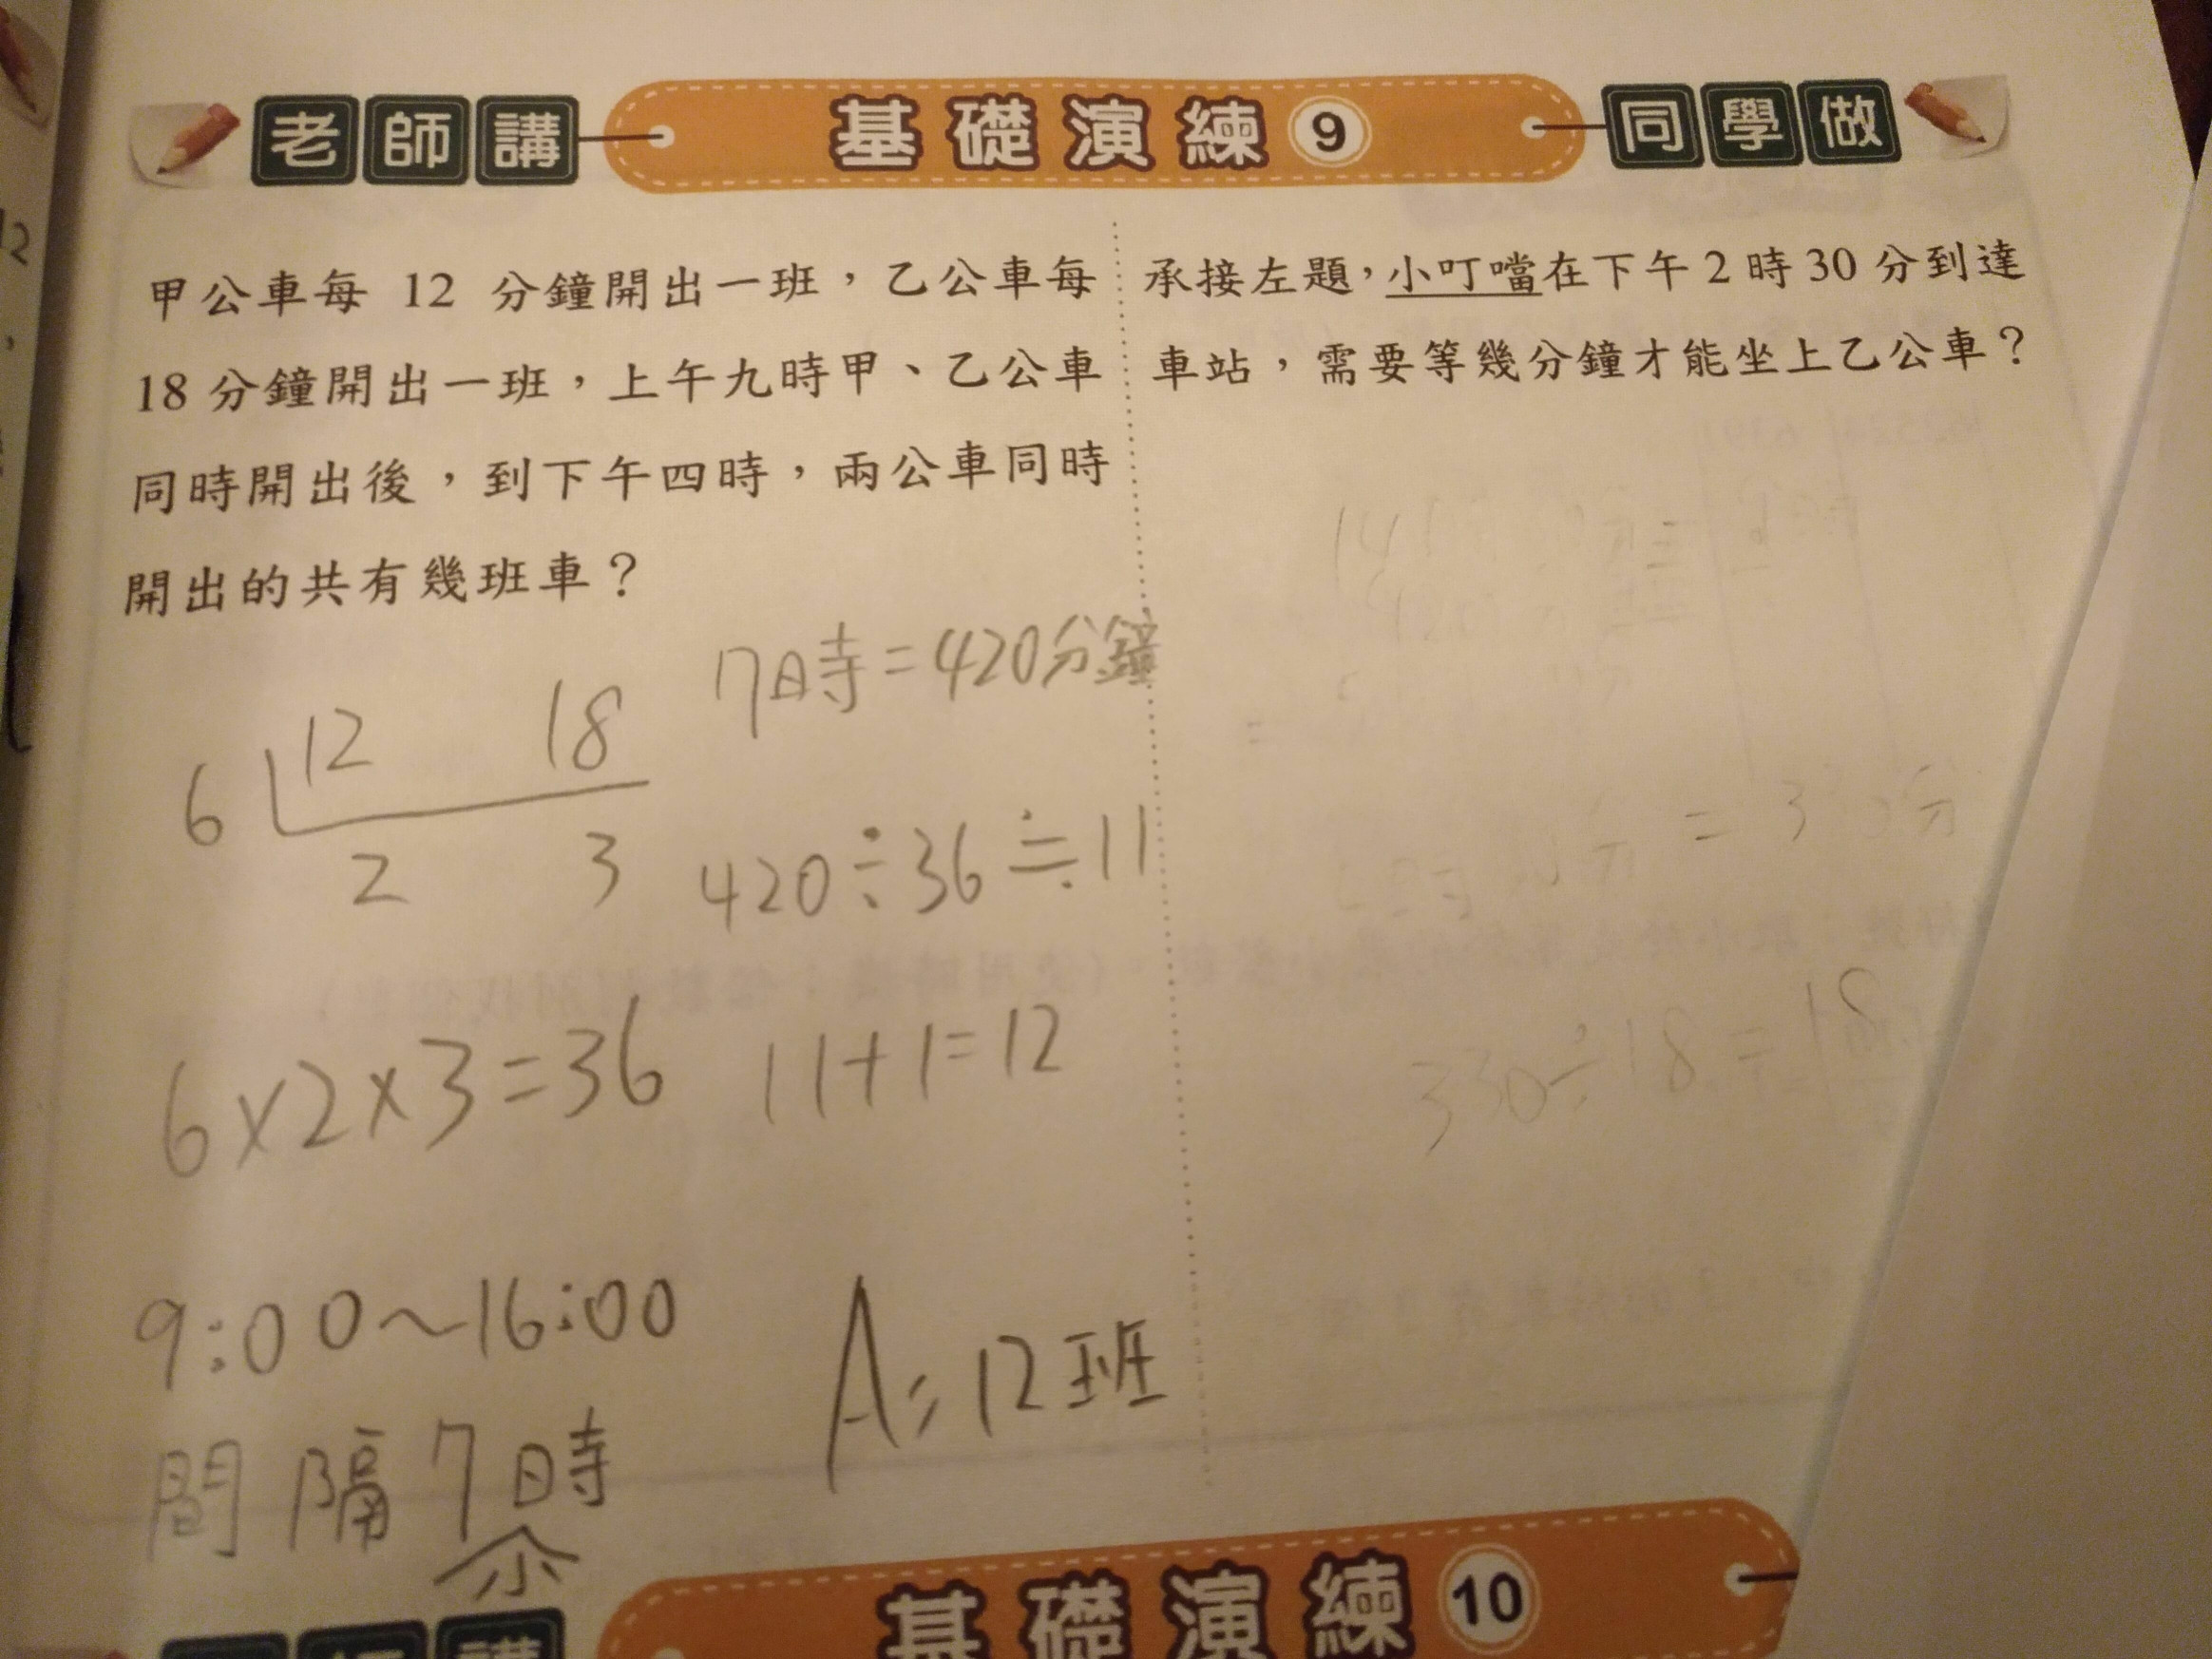 老師講
基礎演練 9
同學做
甲公車每 12 分鐘開出一班，乙公車每
18 分鐘開出一班，上午九時甲、乙公車
同時開出後，到下午四時，兩公車同時
開出的共有幾班車？
6 12 18
2 3
6×2×3=36
9:00～16:00
間隔7時
小
7時=420分鐘
420÷36≒11
11+1=12
A：12班
承接左題，小叮噹在下午 2 時 30 分到達
車站，需要等幾分鐘才能坐上乙公車？
330÷18=18
基礎演練 10
講